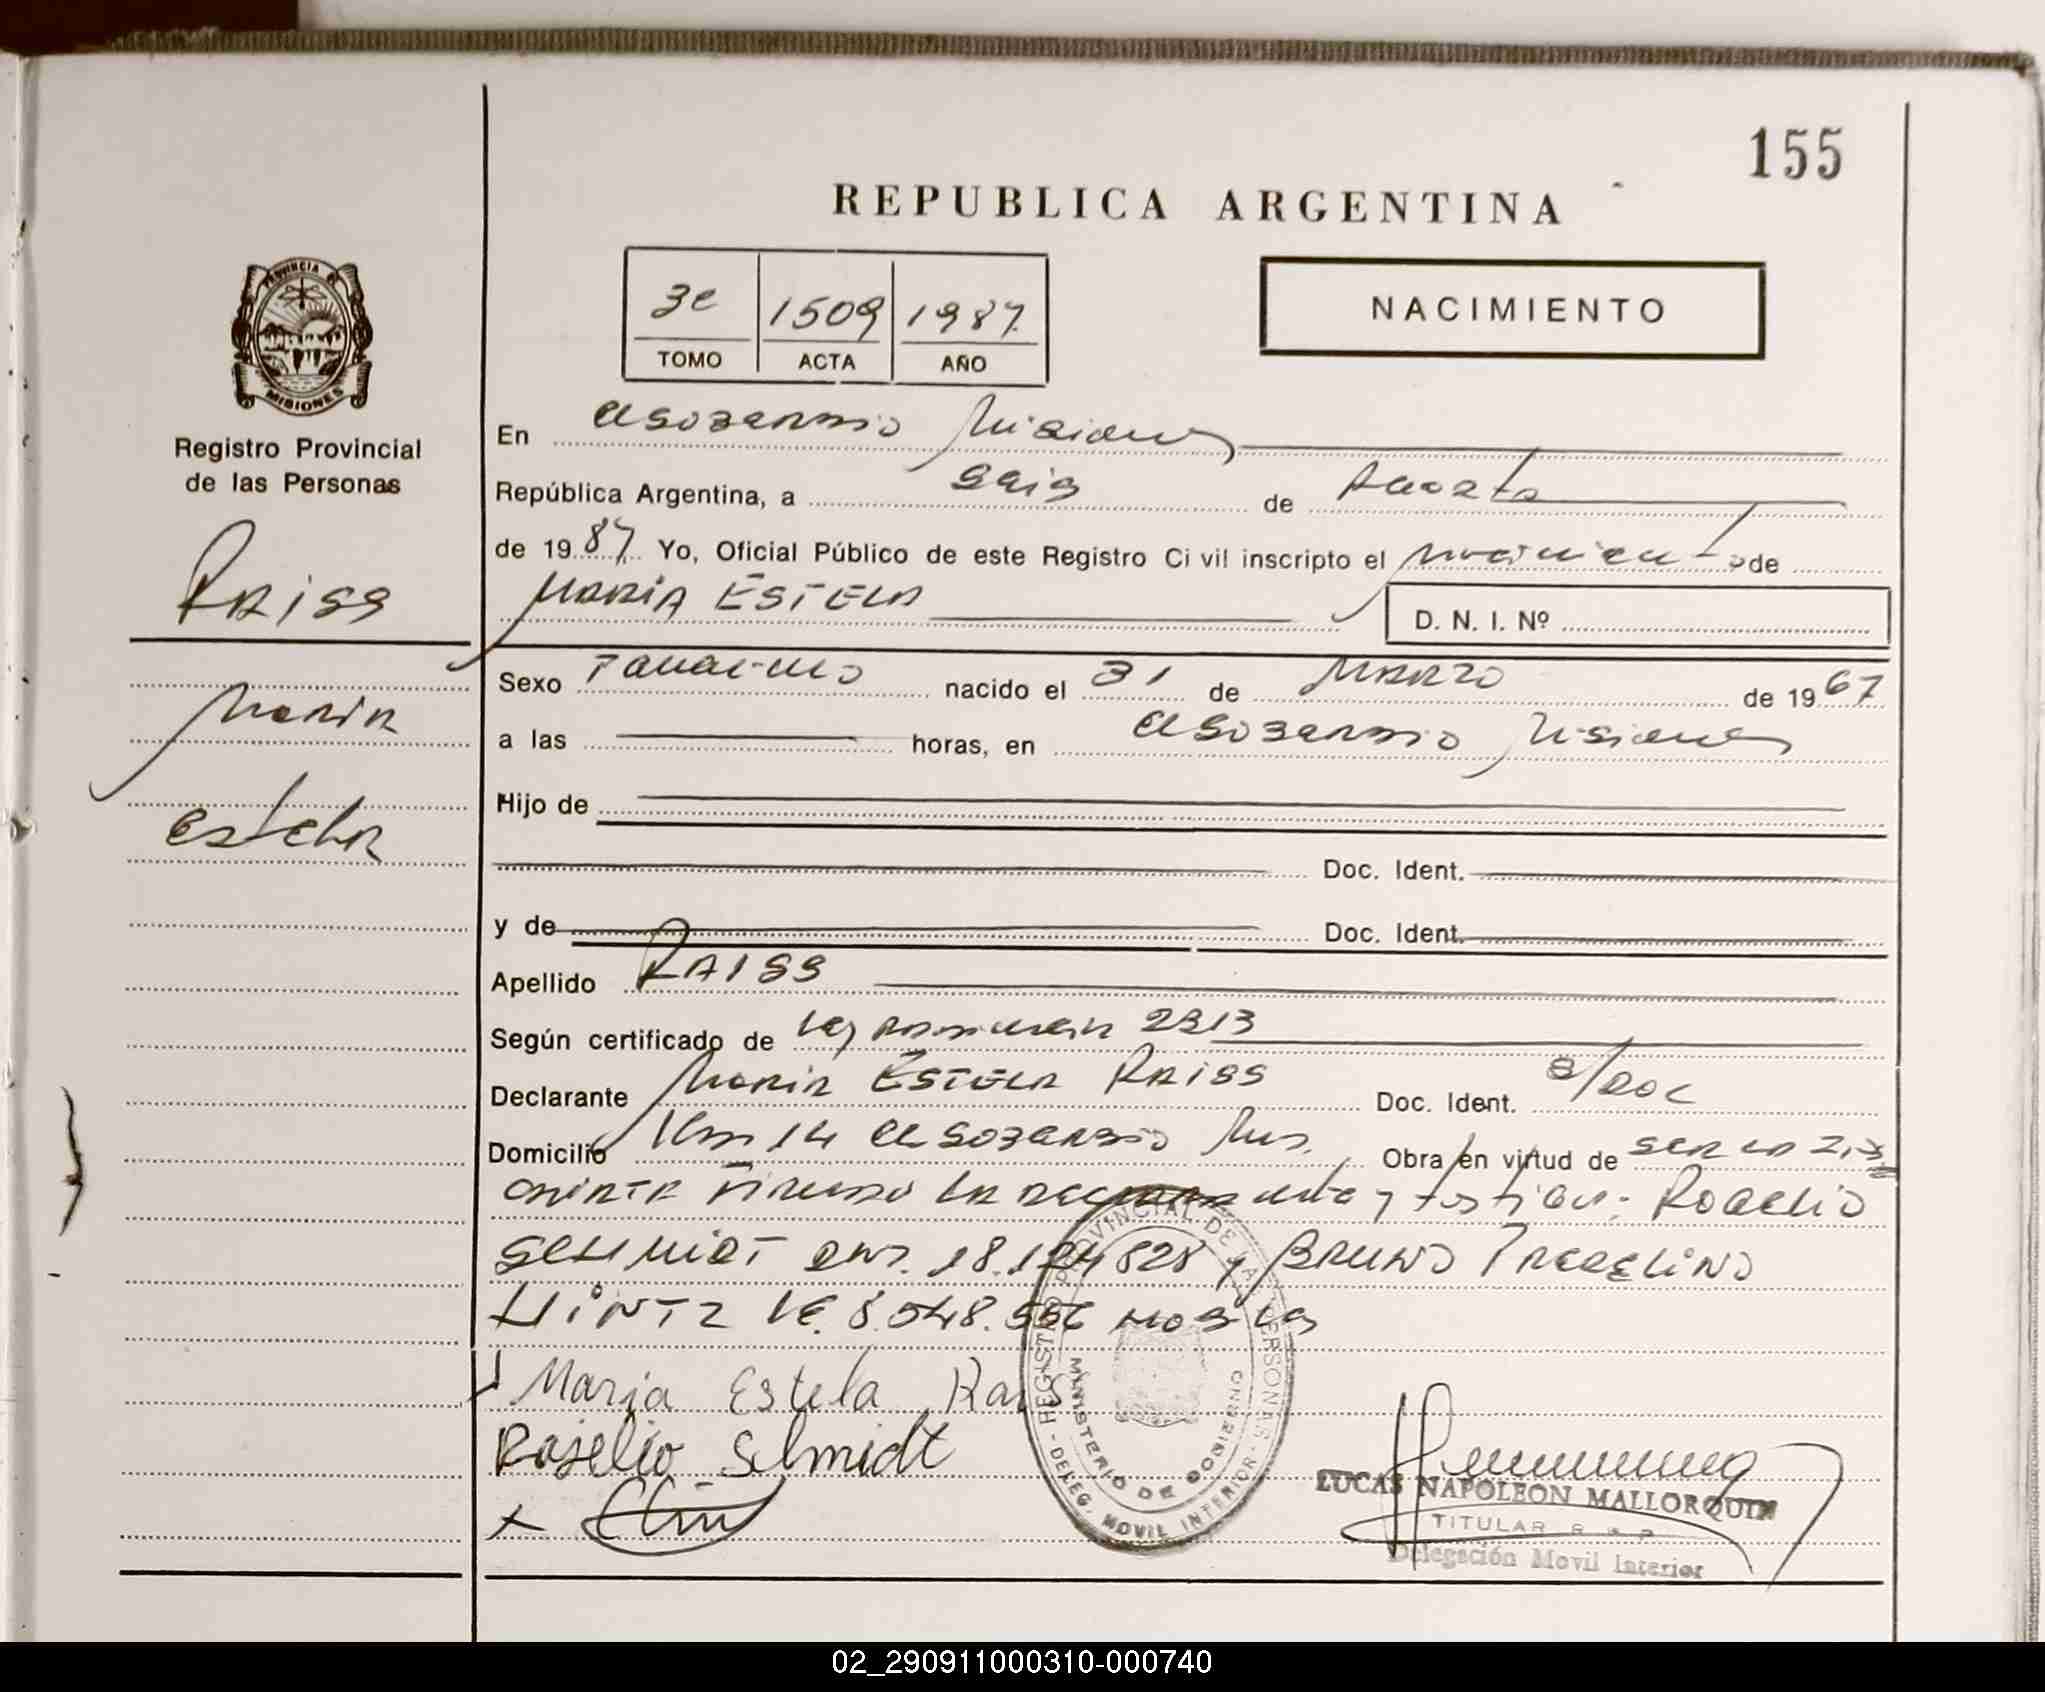 155
REPUBLICA ARGENTINA
3e 1509 1987
TOMO ACTA AÑO
NACIMIENTO
PROVINCIA DE MISIONES
Registro Provincial
de las Personas
Raiss
Maria
Estela
En Misiones
República Argentina, a seis de Agosto
de 1987 Yo, Oficial Público de este Registro Civil inscripto el nacimiento de
MARIA ESTELA
D. N. I. Nº
Sexo Femenino nacido el 31 de MARZO de 1967
a las horas, en Misiones
Hijo de
Doc. Ident.
y de Doc. Ident.
Apellido RAISS
Según certificado de Ley 2313
Declarante Maria ESTELA Raiss Doc. Ident. s/doc
Domicilio Km 14 Mis. Obra en virtud de ser la
firman la y testigos: Rogelio
SCHMIDT DNI. 18.174 828 y BRUNO
HINTZ LE. 8.548.556
Maria Estela Rais
Rojelio Schmidt
x
REGISTRO PROVINCIAL DE LAS PERSONAS
MINISTERIO DE GOBIERNO
DELEG. MOVIL INTERIOR
LUCAS NAPOLEON MALLORQUIN
TITULAR R. P.
Delegación Movil Interior
02_290911000310-000740